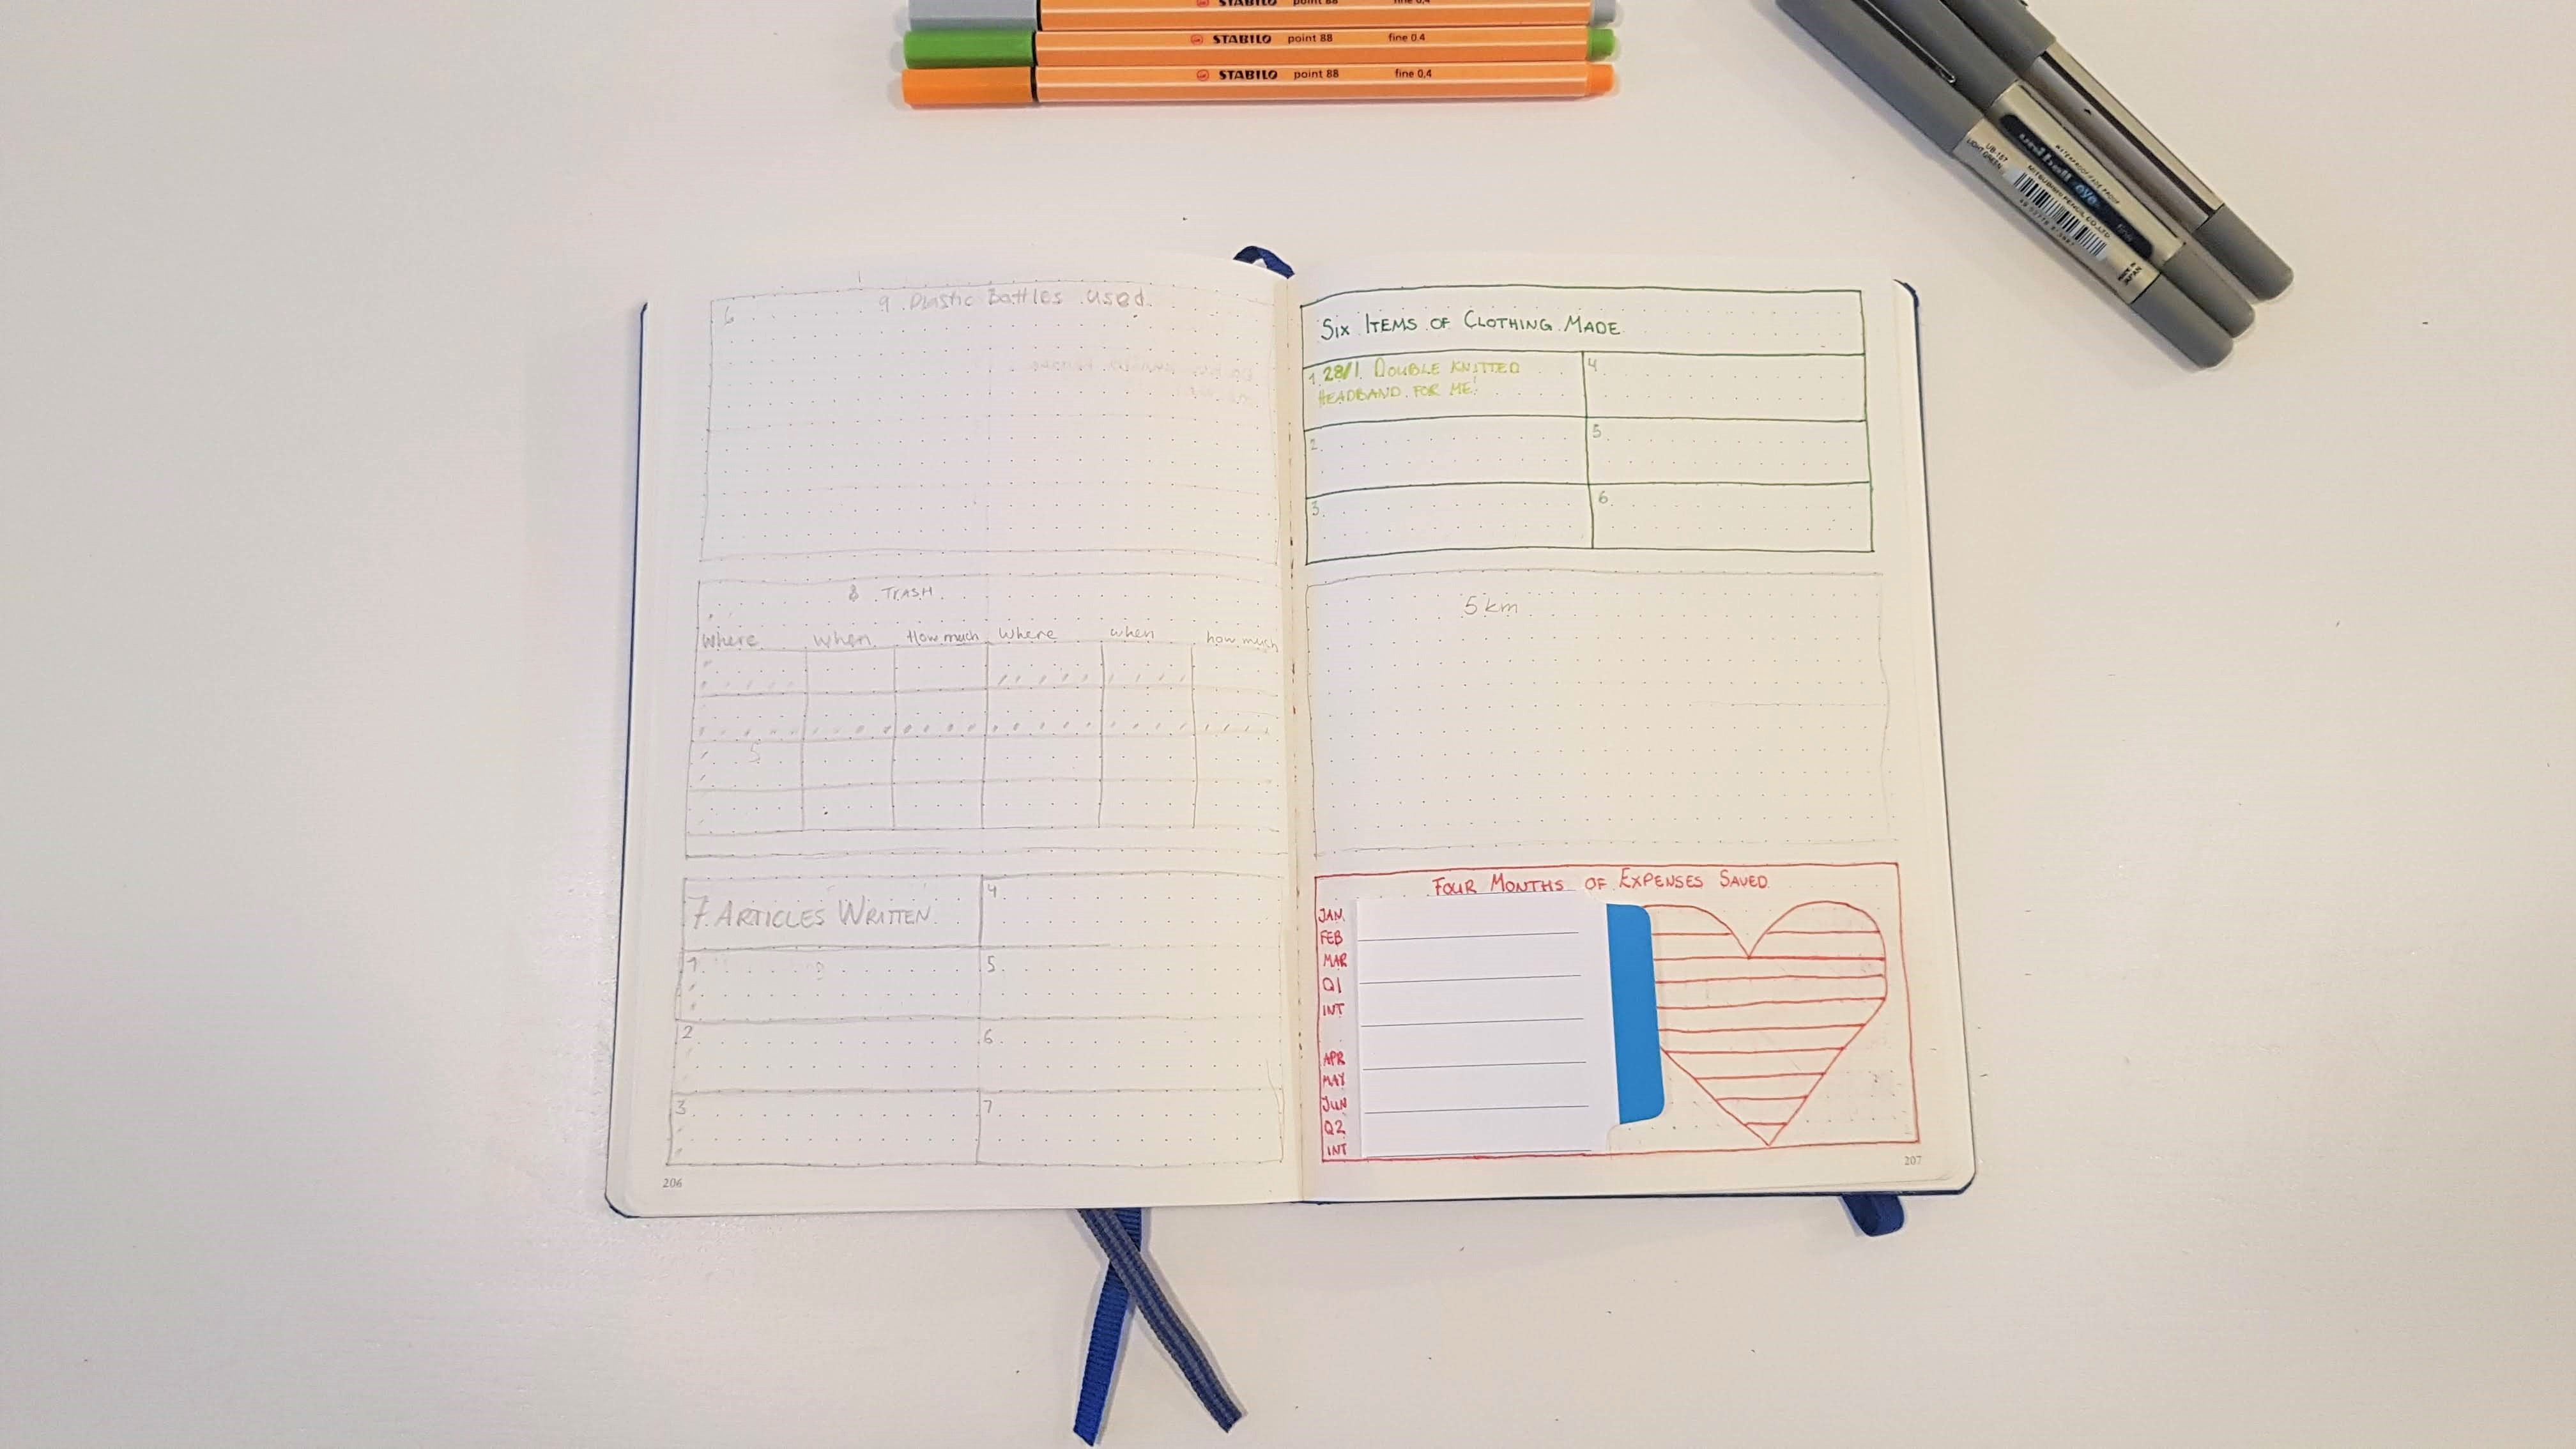 STABILO point 88 fine 0,4
STABILO point 88 fine 0.4
STABILO point 88 fine 0,4
UB-157
LIGHT GREEN
uni-ball eye fine
MITSUBISHI PENCIL CO.,LTD
MADE IN JAPAN
9 Plastic Bottles used
6
8 TRASH
Where When How much Where when how much
5
7. ARTICLES WRITTEN
4
1.
5.
2
6.
3
7
206
SIX ITEMS OF CLOTHING MADE
1. 28/1. DOUBLE KNITTED
HEADBAND FOR ME!
4
2.
5.
3.
6.
5 km
FOUR MONTHS OF EXPENSES SAVED
JAN
FEB
MAR
Q1
INT
APR
MAY
JUN
Q2
INT
207